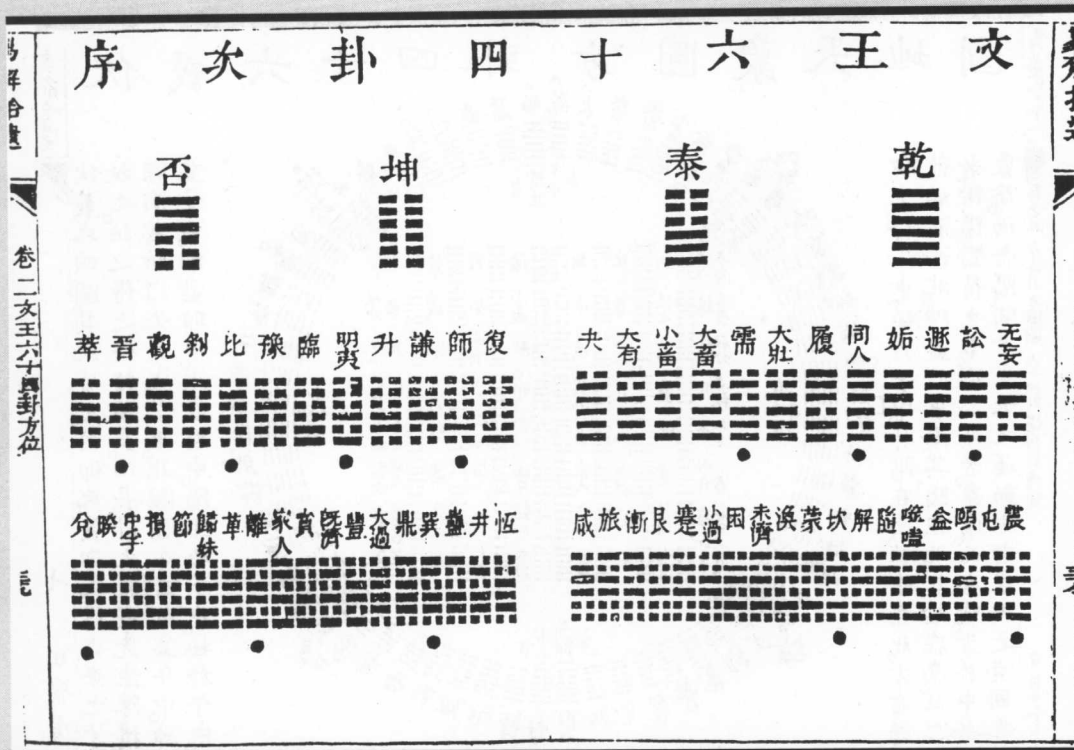 文王六十四卦次序
乾 泰 坤 否
无妄 訟 遯 姤 同人 履 大壯 需 大畜 小畜 大有 夬 復 師 謙 升 明夷 臨 豫 比 剝 觀 晉 萃
震 屯 頤 益 噬嗑 隨 解 坎 蒙 渙 未濟 困 小過 蹇 艮 漸 旅 咸 恆 井 蠱 巽 鼎 大過 豐 既濟 賁 家人 離 革 歸妹 節 損 中孚 睽 兌
易解拾遺
卷二文王六十四卦方位